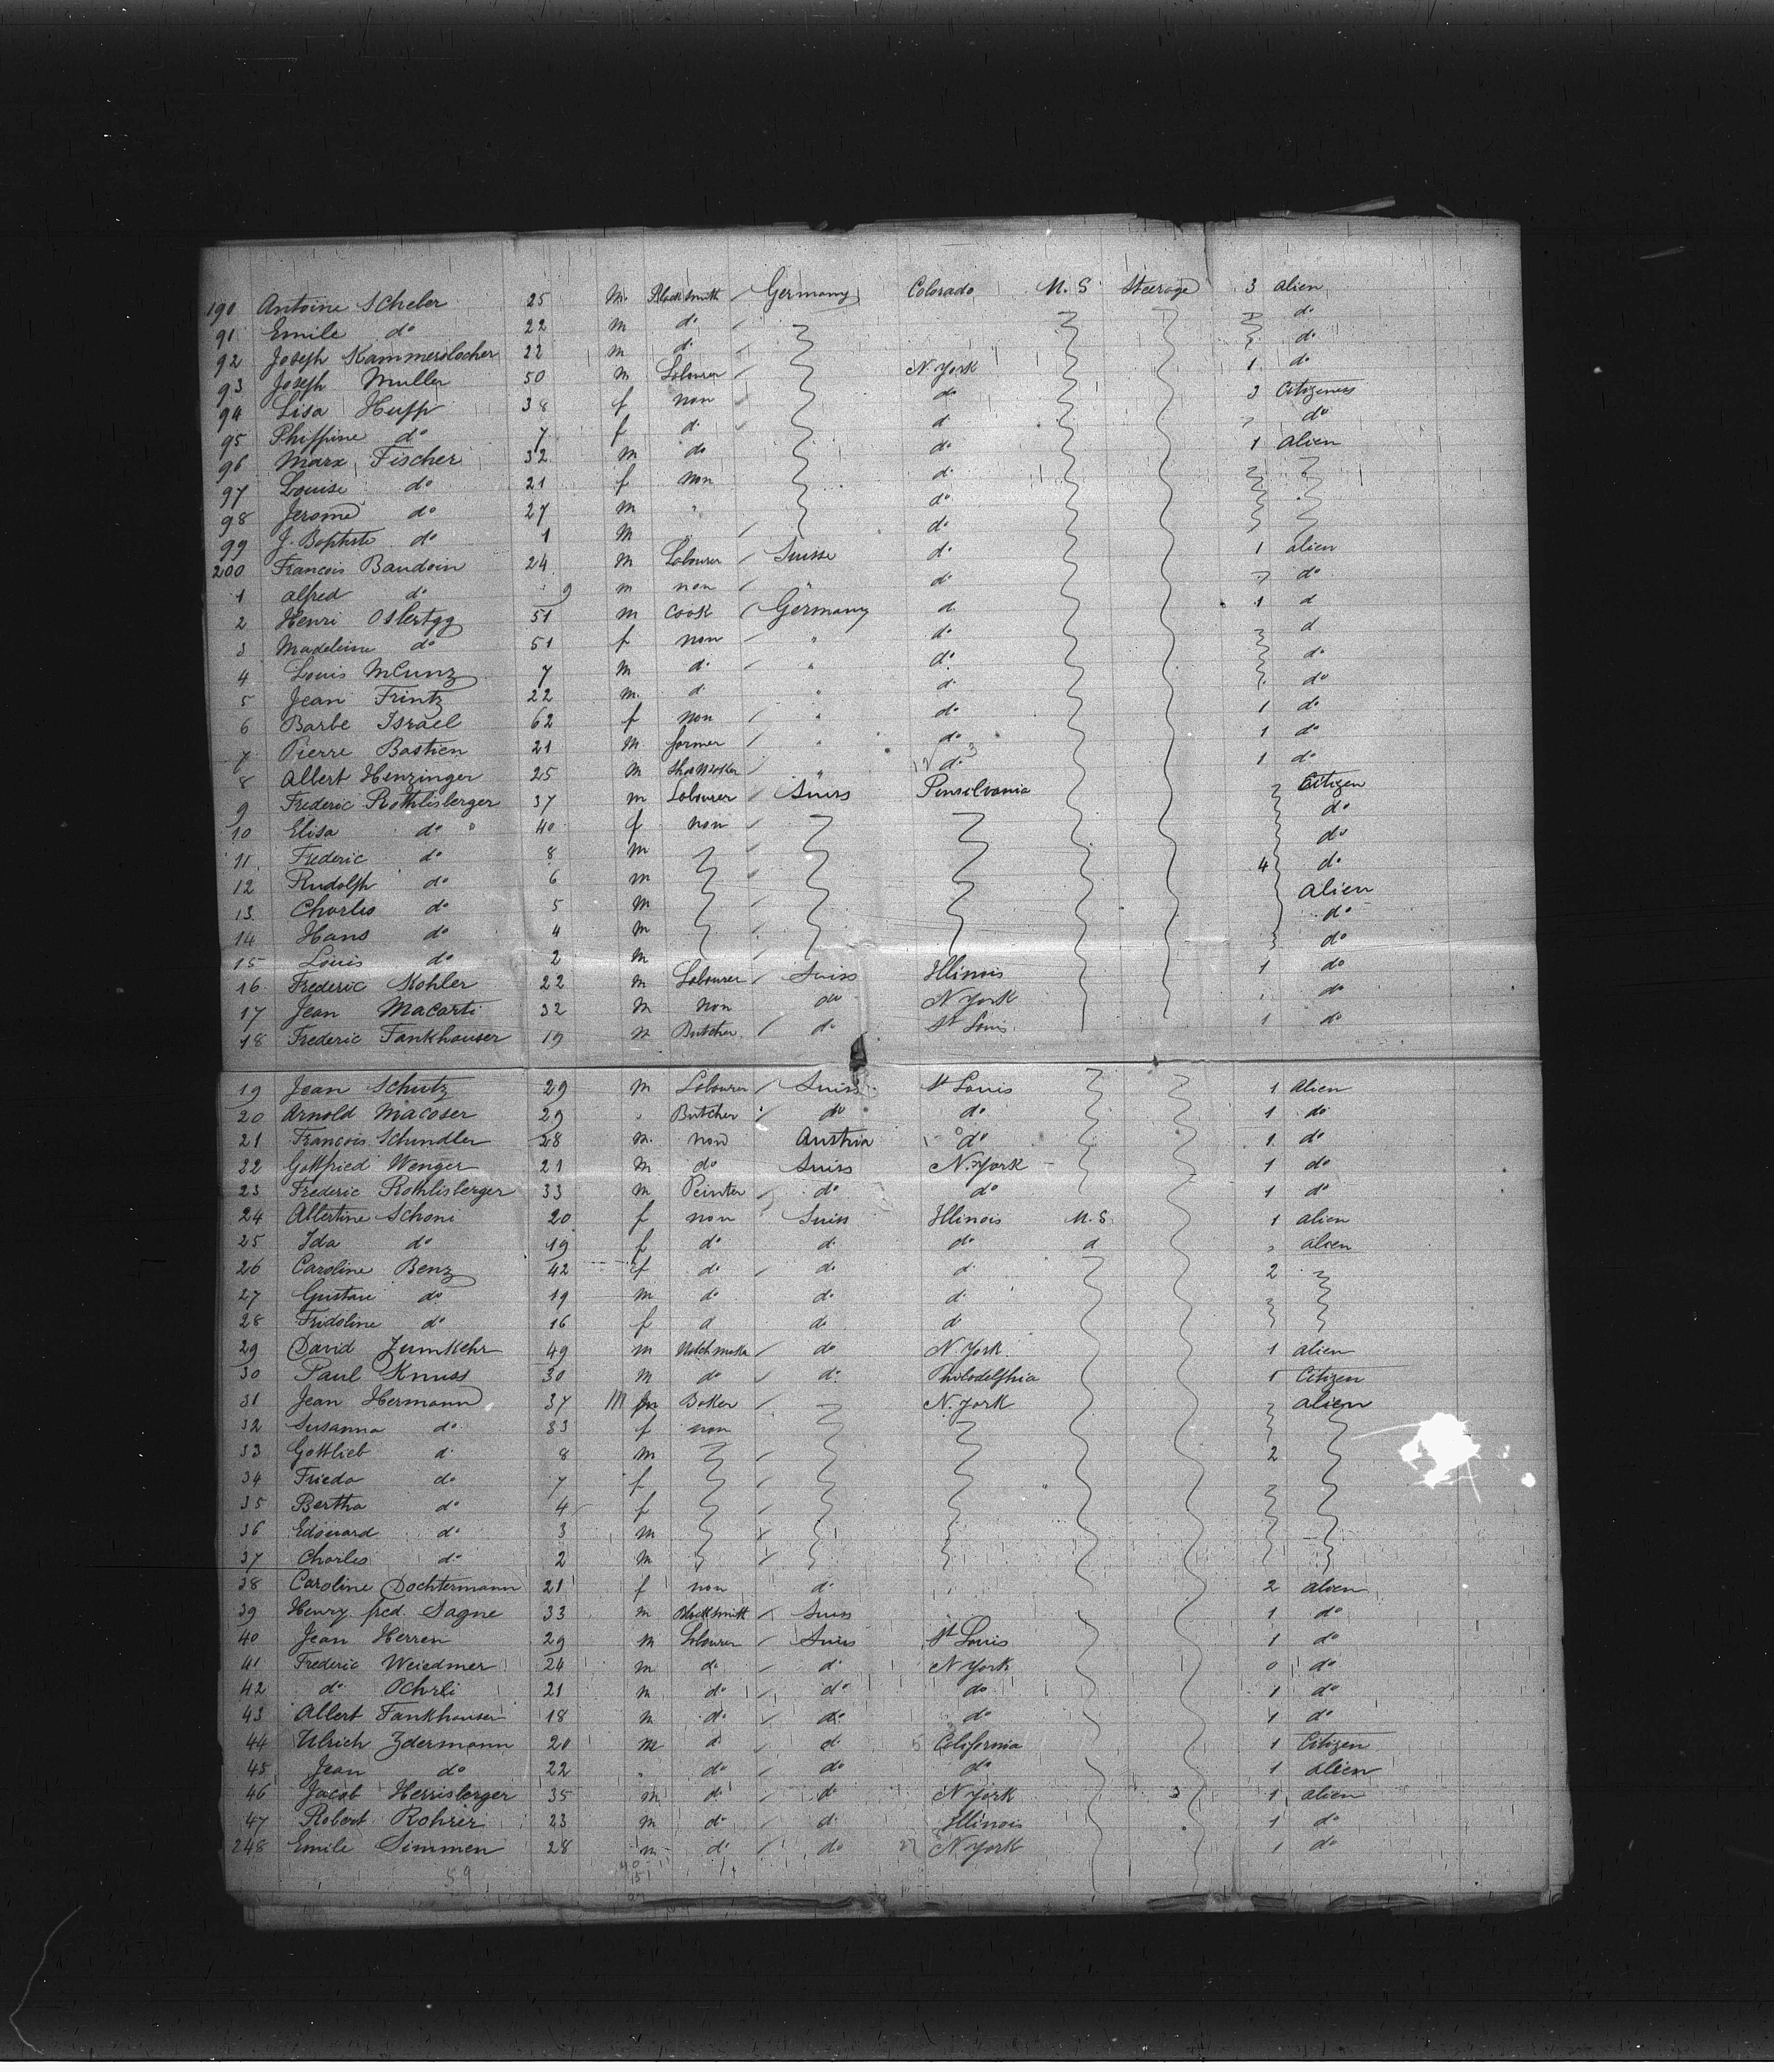 190 Antoine Scheler 25 m. Blacksmith Germany Colorado U.S Steerage 3 alien
91 Emile do 22 m do do
92 Joseph Kammerslocher 22 m do do
93 Joseph Muller 50 m Labourer N. York 1 do
94 Lisa Hupp 38 f non do 3 Citizeness
95 Phippine do 7 f d. d do
96 Marx Fischer 32 m do do 1 alien
97 Louise do 21 f non d.
98 Jerome do 27 m " do
99 J. Baptiste do 1 m do
200 Francois Baudoin 24 m Labourer Suisse do 1 alien
1 alfred do 9 m non " do do
2 Henri Ostertgg 51 m Cook Germany d. 1 d
3 Madeleine do 51 f non " do d
4 Louis 7 m d. " do do
5 Jean Frintz 22 m. d. " d. do
6 Barbe Israel 62 f non " do 1 do
7 Pierre Bastien 21 m. farmer " do 1 do
8 Albert Henzinger 25 m Shoemaker " d. 1 do
9 Frederic Rothlisberger 37 m Labourer Suiss Pensilvania Citizen
10 Elisa do 40 f non do
11 Frederic do 8 m do
12 Rudolph do 6 m 4 do
13 Charles do 5 m alien
14 Hans do 4 m do
15 Louis do 2 m do
16 Frederic Kohler 22 m Labourer Suiss Illinois 1 do
17 Jean Macarti 32 m non do N York do
18 Frederic Fankhauser 19 m Butcher do St Louis 1 do
19 Jean Schutz 29 m Labourer Suiss St Louis 1 alien
20 Arnold Macoser 29 " Butcher do do 1 do
21 Francois Schindler 28 m. non Austria do 1 do
22 Gottfried Wenger 21 m. do Suiss N. York 1 do
23 Frederic Rothlisberger 33 m Peinter do do 1 do
24 Albertine Schoni 20 f non Suiss Illinois U.S. 1 alien
25 Ida do 19 f do d. do d alien
26 Caroline Benz 42 f do do d 2
27 Gustave do 19 m do do d.
28 Fridoline do 16 f d do d
29 David Zumkehr 49 m Watchmaker do N. York 1 alien
30 Paul Knuss 30 m do d. Philadelphia 1 Citizen
31 Jean Hermann 37 M Baker N. York alien
32 Susanna do 33 f non
33 Gottlieb d. 8 m 2
34 Frieda do 7 f
35 Bertha do 4 f
36 Edouard do 3 m
37 Charles do 2 m
38 Caroline Dochtermann 21 f non d. 2 alien
39 Henry fred. Sagne 33 m Blacksmith Suiss 1 do
40 Jean Herren 29 m Labourer Suiss St Louis 1 do
41 Frederic Weiedmer 24 m d. d. N York 0 do
42 do Ochrli 21 m do do do 1 do
43 Albert Fankhauser 18 m do do do 1 do
44 Ulrich Zdermann 20 m d d. California 1 Citizen
45 Jean do 22 " do do do 1 alien
46 Jacob Herrisberger 35 m d. do N York 1 alien
47 Robert Rohrer 23 m do d. Illinois 1 do
248 Emile Simmen 28 m d. do N York 1 do
59